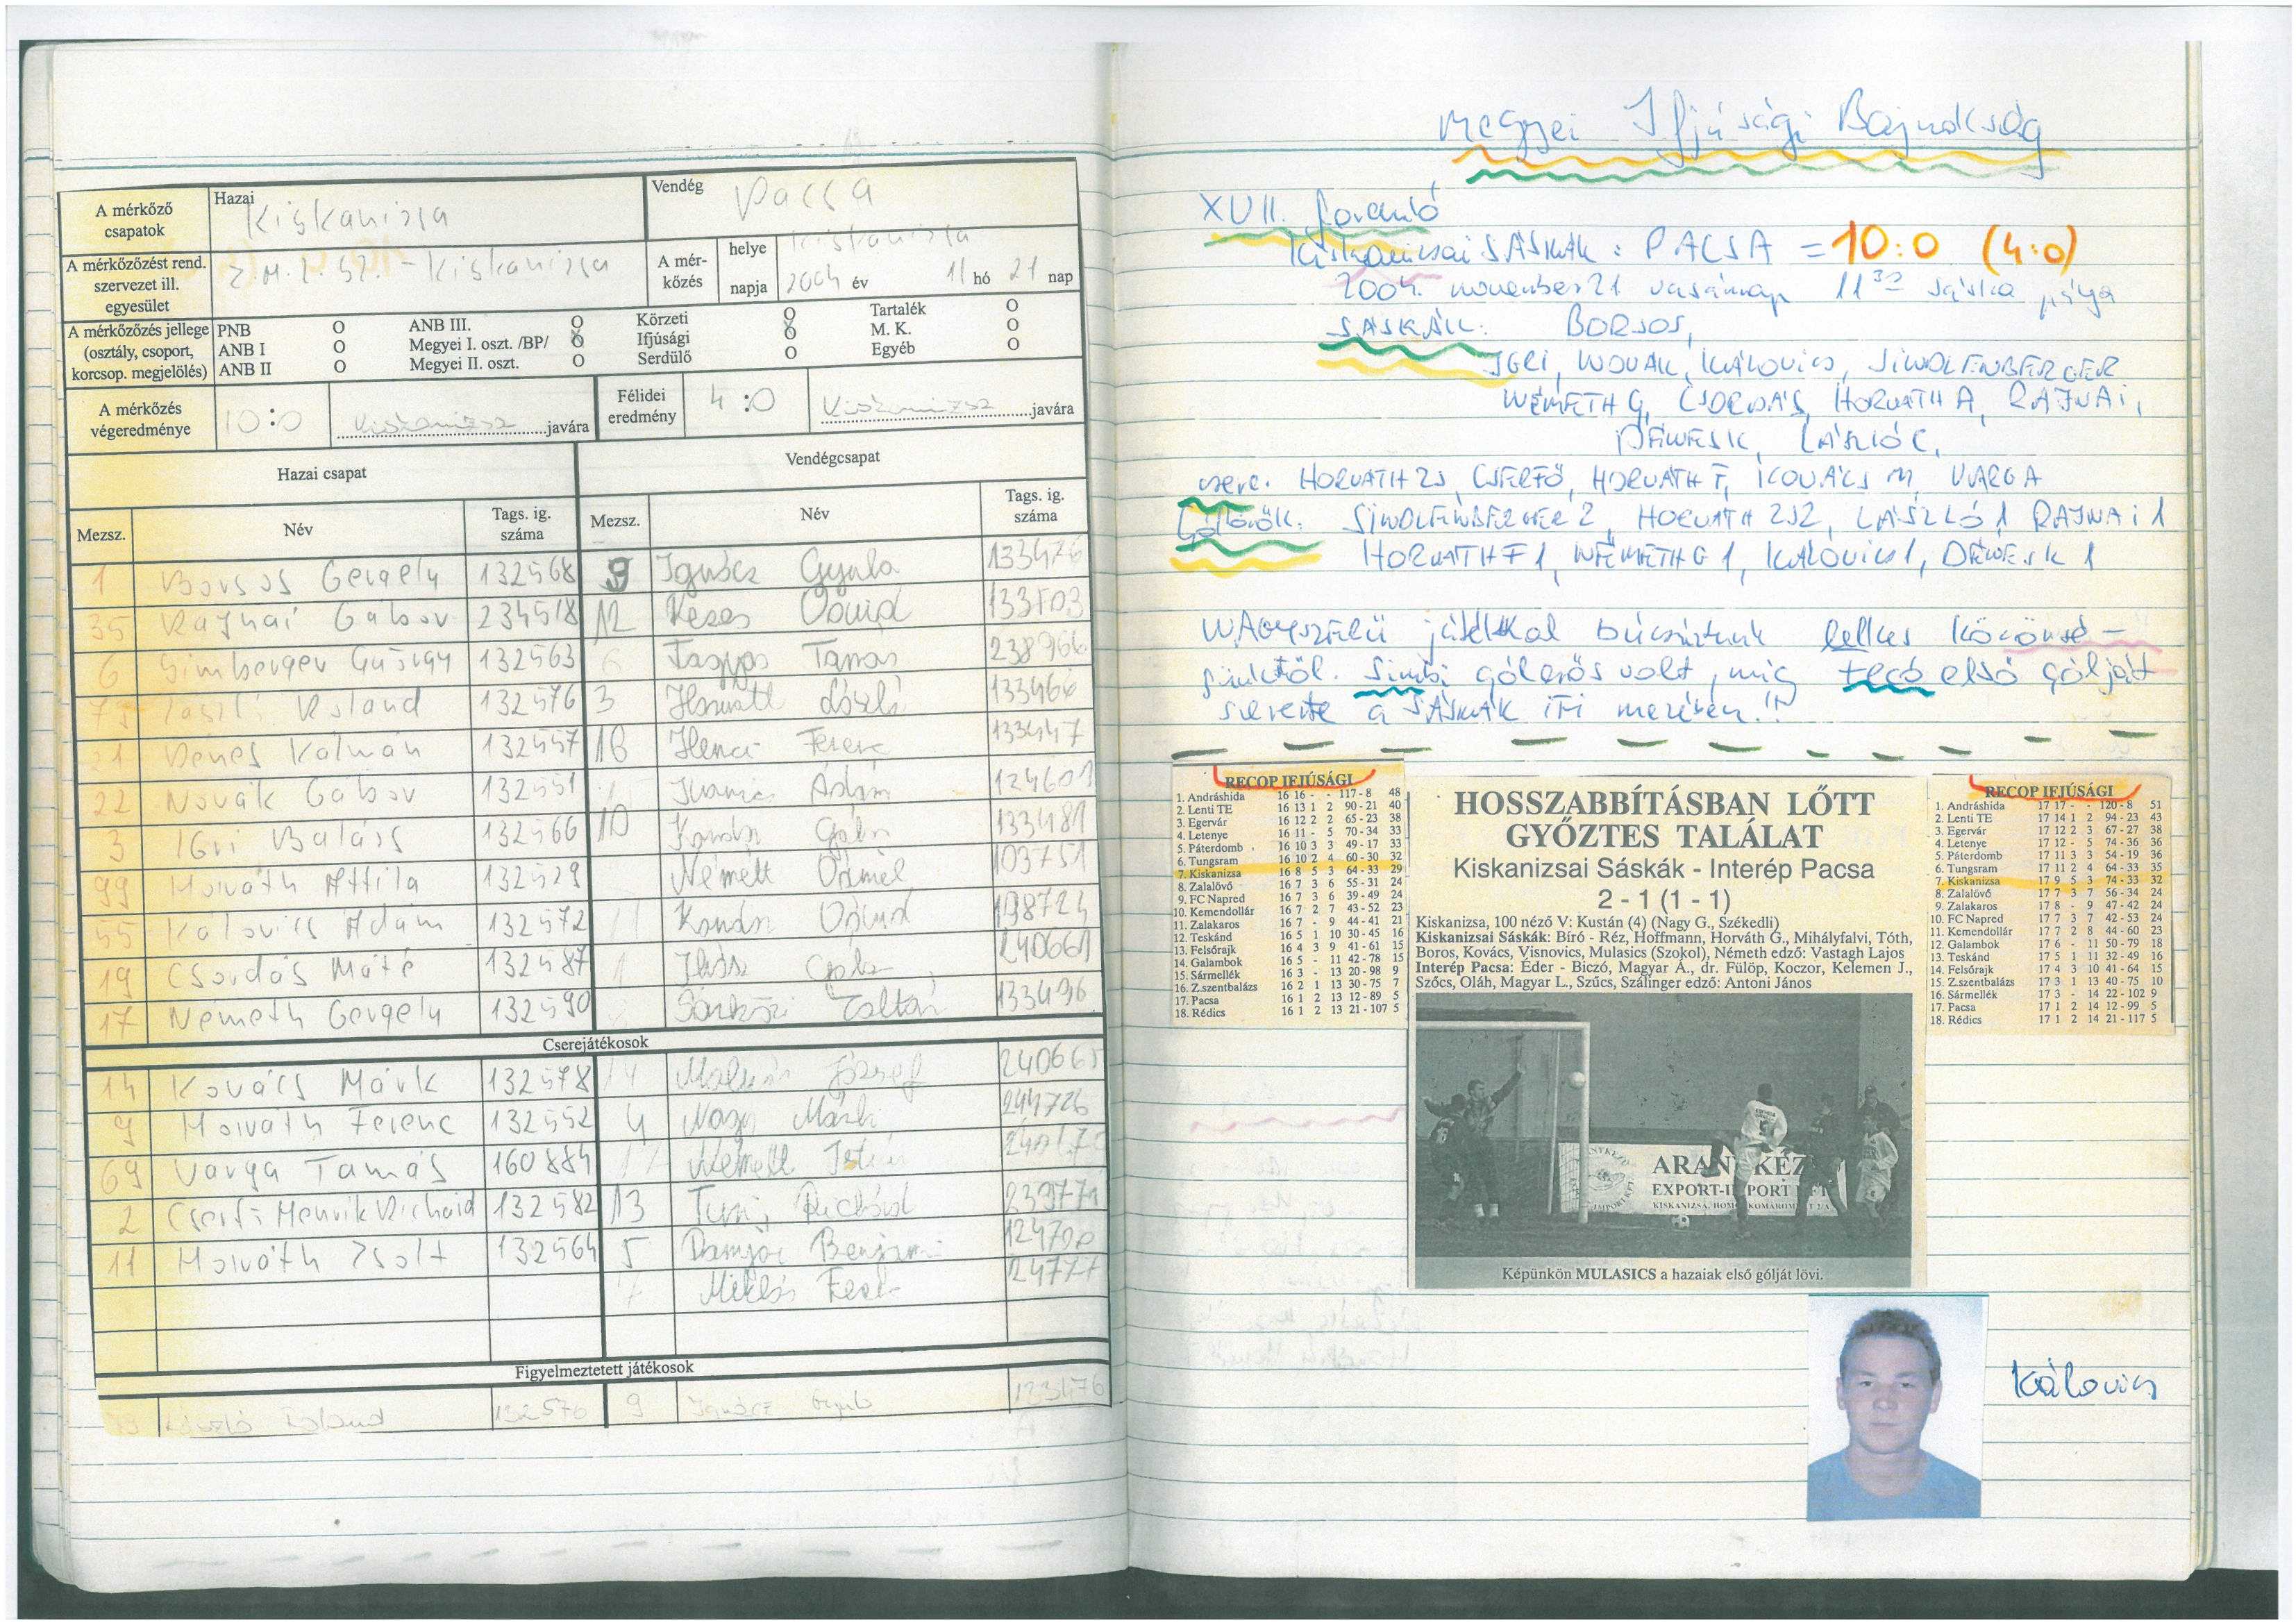 A mérkőző csapatok
Hazai Kiskanizsa
Vendég Pacsa
A mérkőzőzést rend. szervezet ill. egyesület
Z.M.L.SZ. - Kiskanizsa
A mérkőzés
helye Kiskanizsa
napja 2004 év 11 hó 21 nap
A mérkőzőzés jellege (osztály, csoport, korcsop. megjelölés)
PNB O ANB III. O Körzeti O Tartalék O
ANB I O Megyei I. oszt. /BP/ O Ifjúsági O M. K. O
ANB II O Megyei II. oszt. O Serdülő O Egyéb O
A mérkőzés végeredménye
10:0 Kiskanizsa javára
Félidei eredmény
4:0 Kiskanizsa javára
Hazai csapat Vendégcsapat
Mezsz. Név Tags. ig. száma Mezsz. Név Tags. ig. száma
1 Borsos Gergely 132568 9 Ignácz Gyula 133476
35 Rajnai Gábor 234518 12 Dávid 133703
6 György 132563 Tamás 238966
László Roland 132576 3 Horváth László 133466
21 Dénes Kálmán 132557 16 Ferenc 133447
22 Novák Gábor 132551 Ádám 124601
3 Igri Balázs 132566 10 133481
99 Horváth Attila 132529 Németh Dániel 103751
55 Kálovics Ádám 132572 Dávid 198724
19 Csordás Máté 132587 240661
17 Németh Gergely 132590 Zoltán 133496
Cserejátékosok
14 Kovács Márk 132578 14 József
9 Horváth Ferenc 132552 4 Nagy Márk 244726
69 Varga Tamás 160884 Németh István
2 Cserfő Henrik Richard 132582 13 Richárd 239771
11 Horváth Zsolt 132564 5
7 Miklós
Figyelmeztetett játékosok
László Roland 132576 9 Ignácz Gyula 133476
Megyei Ifjúsági Bajnokság
XVII. forduló
Kiskanizsai SÁSKÁK : PACSA = 10:0 (4:0)
2004. november 21 vasárnap 11 30 sáska pálya
SÁSKÁK: BORSOS,
IGRI, NOVÁK, KÁLOVICS, SINDLENBERGER
NÉMETH G, CSORDÁS, HORVÁTH A, RAJNAI,
DÉNES K, LÁSZLÓ R,
csere: HORVÁTH ZS, CSERFŐ, HORVÁTH F, KOVÁCS M, VARGA
Góllövők: SINDLENBERGER 2, HORVÁTH ZS 2, LÁSZLÓ 1 RAJNAI 1
HORVÁTH F 1, NÉMETH G 1, KÁLOVICS 1, DÉNES K 1
NAGYSZERŰ játékkal búcsúztunk lelkes közönsé-
günktől. Simbi gólerős volt, míg tecó első gólját
szerezte a SÁSKÁK IFI mezében!!
RECOP IFJÚSÁGI
1. Andráshida 16 16 - - 117-8 48
2. Lenti TE 16 13 1 2 90-21 40
3. Egervár 16 12 2 2 65-23 38
4. Letenye 16 11 - 5 70-34 33
5. Páterdomb 16 10 3 3 49-17 33
6. Tungsram 16 10 2 4 60-30 32
7. Kiskanizsa 16 8 5 3 64-33 29
8. Zalalövő 16 7 3 6 55-31 24
9. FC Napred 16 7 3 6 39-49 24
10. Kemendollár 16 7 2 7 43-52 23
11. Zalakaros 16 7 - 9 44-41 21
12. Teskánd 16 5 1 10 30-45 16
13. Felsőrajk 16 4 3 9 41-61 15
14. Galambok 16 5 - 11 42-78 15
15. Sármellék 16 3 - 13 20-98 9
16. Z.szentbalázs 16 2 1 13 30-75 7
17. Pacsa 16 1 2 13 12-89 5
18. Rédics 16 1 2 13 21-107 5
HOSSZABBÍTÁSBAN LŐTT
GYŐZTES TALÁLAT
Kiskanizsai Sáskák - Interép Pacsa
2 - 1 (1 - 1)
Kiskanizsa, 100 néző V: Kustán (4) (Nagy G., Székedli)
Kiskanizsai Sáskák: Bíró - Réz, Hoffmann, Horváth G., Mihályfalvi, Tóth,
Boros, Kovács, Visnovics, Mulasics (Szokol), Németh edző: Vastagh Lajos
Interép Pacsa: Éder - Biczó, Magyar Á., dr. Fülöp, Koczor, Kelemen J.,
Szőcs, Oláh, Magyar L., Szűcs, Szálinger edző: Antoni János
ARANYKÉZ
EXPORT-IMPORT KFT
Képünkön MULASICS a hazaiak első gólját lövi.
RECOP IFJÚSÁGI
1. Andráshida 17 17 - - 120-8 51
2. Lenti TE 17 14 1 2 94-23 43
3. Egervár 17 12 2 3 67-27 38
4. Letenye 17 12 - 5 74-36 36
5. Páterdomb 17 11 3 3 54-19 36
6. Tungsram 17 11 2 4 64-33 35
7. Kiskanizsa 17 9 5 3 74-33 32
8. Zalalövő 17 7 3 7 56-34 24
9. Zalakaros 17 8 - 9 47-42 24
10. FC Napred 17 7 3 7 42-53 24
11. Kemendollár 17 7 2 8 44-60 23
12. Galambok 17 6 - 11 50-79 18
13. Teskánd 17 5 1 11 32-49 16
14. Felsőrajk 17 4 3 10 41-64 15
15. Z.szentbalázs 17 3 1 13 40-75 10
16. Sármellék 17 3 - 14 22-102 9
17. Pacsa 17 1 2 14 12-99 5
18. Rédics 17 1 2 14 21-117 5
Kálovics